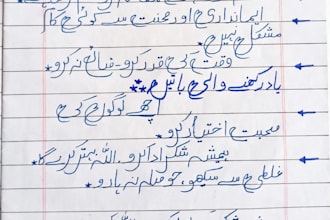 ایمانداری اور محنت سے کوئی کام
مشکل نہیں۔
وقت کی قدر کرو۔ ضائع نہ کرو۔
یاد رکھنے والی باتیں**
اچھے لوگوں کی
صحبت اختیار کرو۔
ہمیشہ شکر ادا کرو، اللہ بہتر کرے گا۔
غلطی سے سیکھو، حوصلہ نہ ہارو۔